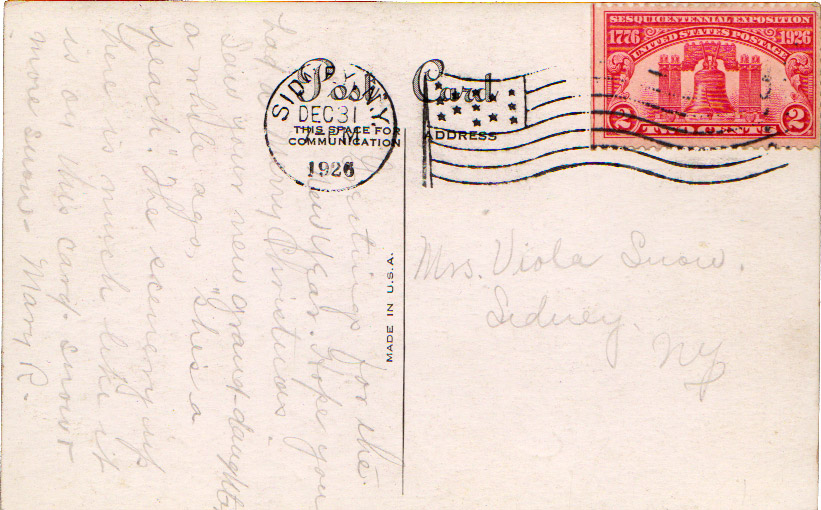 Post Card
THIS SPACE FOR
COMMUNICATION
ADDRESS
SIDNEY N.Y.
DEC 31
1926
SESQUICENTENNIAL EXPOSITION
1776 1926
UNITED STATES POSTAGE
2 TWO CENTS 2
MADE IN U.S.A.
Greetings for the
New Year. Hope you
had a Merry Christmas.
Saw your new grand-daughter,
a ago, "She's a
peach". The scenery up
here is much like it
is on this card - snow +
more snow - Mary R.
Mrs. Viola Snow.
Sidney.
NY